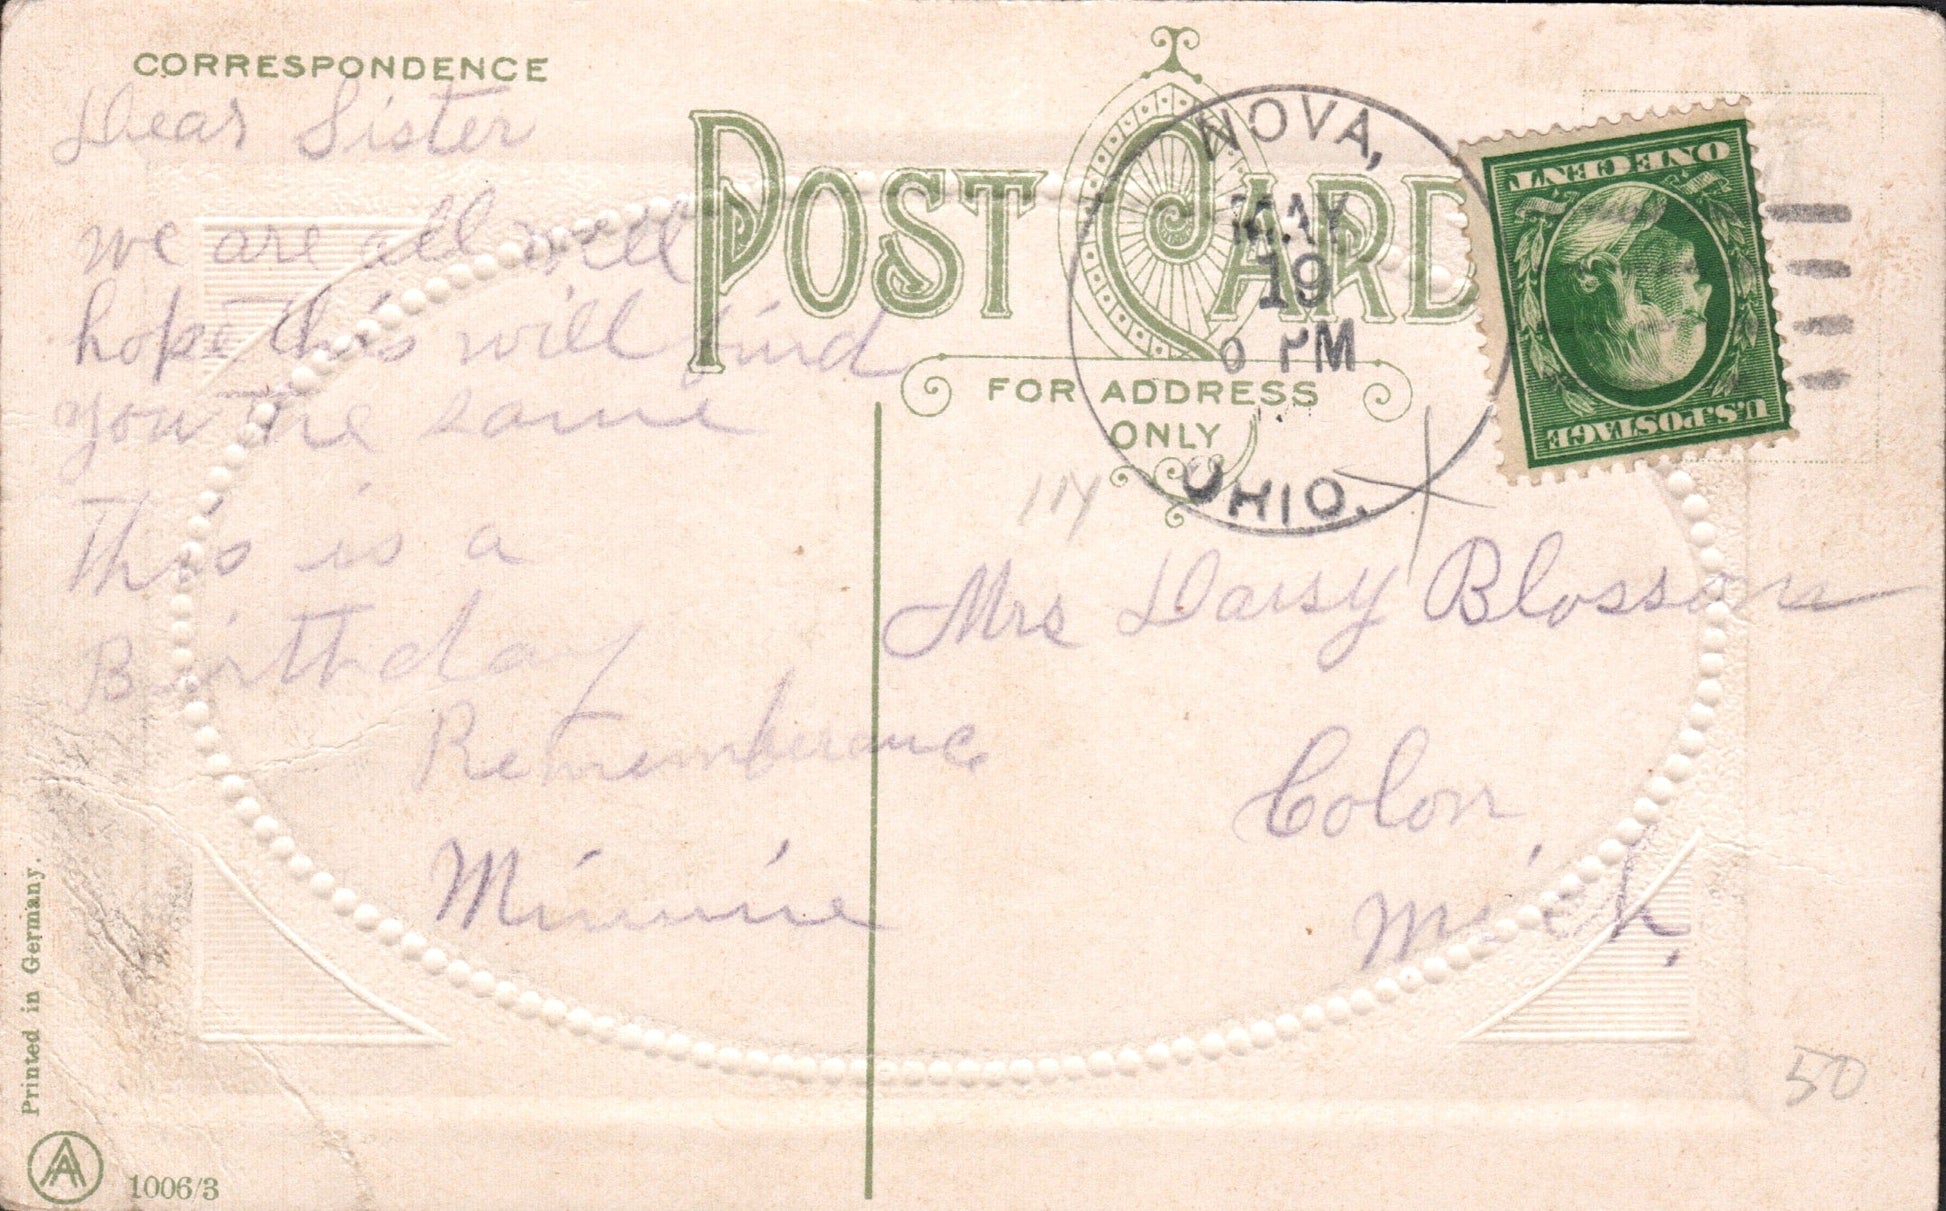 CORRESPONDENCE
Dear Sister
we are all well
hope this will find
you the same
This is a
Birthday
Remembrance
Minnie
POST CARD
FOR ADDRESS
ONLY
NOVA,
MAY
19
PM
OHIO.
ONE CENT
U.S. POSTAGE
Mrs Daisy Blossom
Colon
Mich.
50
Printed in Germany.
1006/3